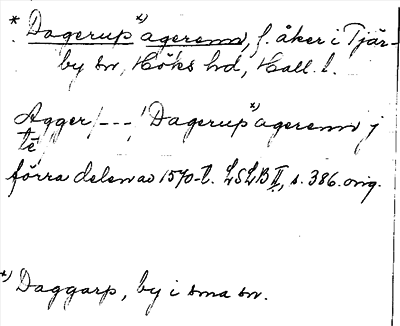 * Dagerup*) agerenn, f. åker i Tjär-
by sn, Höks hd, Hall. l.
Agger/---, Dagerup*) agerenn j
te
förra delen av 1570-t. LSLB II, s. 386. orig.
*) Daggarp, by i sma sn.